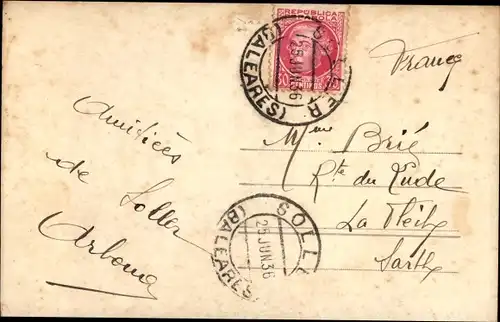 REPUBLICA
SOLLER
(BALEARES)
25 JUN. 36
France
Amitiées
de Soller
Arbona
Mme Brié
Rte du Lude
La Flèche
Sarthe
SOLLER
(BALEARES)
25 JUN. 36